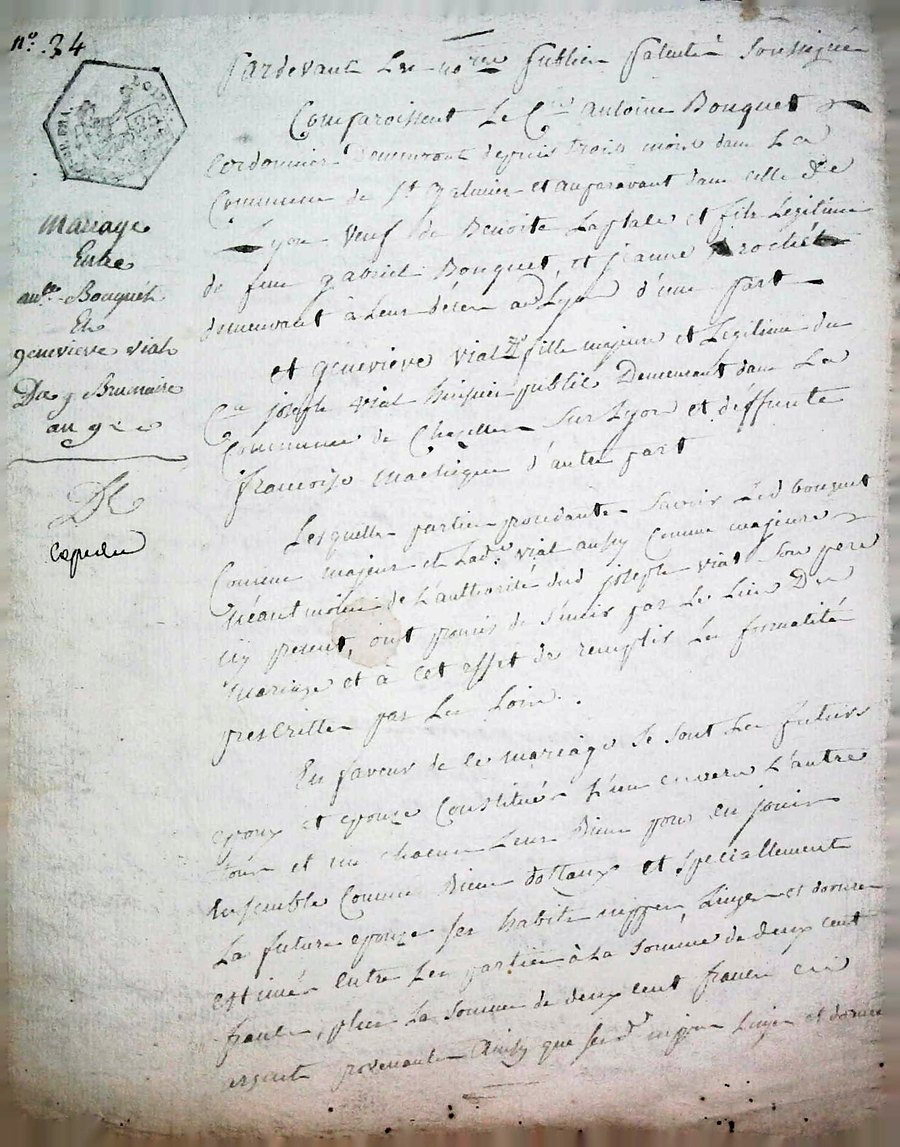 n.o 34
Mariage
Entre
an.ne Bouquet
Et
genevieve vial
Du 9 Brumaire
an 9.e
Expedié
Pardevant Les no.res Publics Patentés Soussignés
Comparoissent Le C.en Antoine Bouquet
Cordonnier Demeurant depuis trois mois dans La
Commune de S.t Galmier et auparavant dans celle de
Lyon veuf de Benoite Laplace et fils Legitime
de feu gabriel Bouquet, et jeanne Rochét
demeurant à Leur décès à Lyon d'une part
et genevieve vial fille majeure et Legitime du
C.en joseph vial huissier public Demeurant dans La
Commune de Chazelles Sur Lyon et deffunte
francoise d'autre part
Lesquelles parties procedantes Savoir Led bouquet
Comme majeur et Lad.e vial aussy Comme majeure
Néantmoins de L'authorité dud joseph vial Son pere
icy present, ont promis de S'unir par les Liens Du
Mariage et à cet effet de remplir Les formalités
prescrittes par Les Loix.
En faveur de ce mariage Se Sont Les futurs
epoux et epouze Constitués L'un envers L'autre
tous et un chacun Leurs Biens pour en jouir
Ensemble Comme Biens dottaux et Speciallement
La future epouze Ses habits nippes, Linges et dorures
estimés entre Les parties à La Somme de deux cent
francs, plus La Somme de deux cent francs en
argent provenante Ainsy que Sesd. nippes Linges et dorures